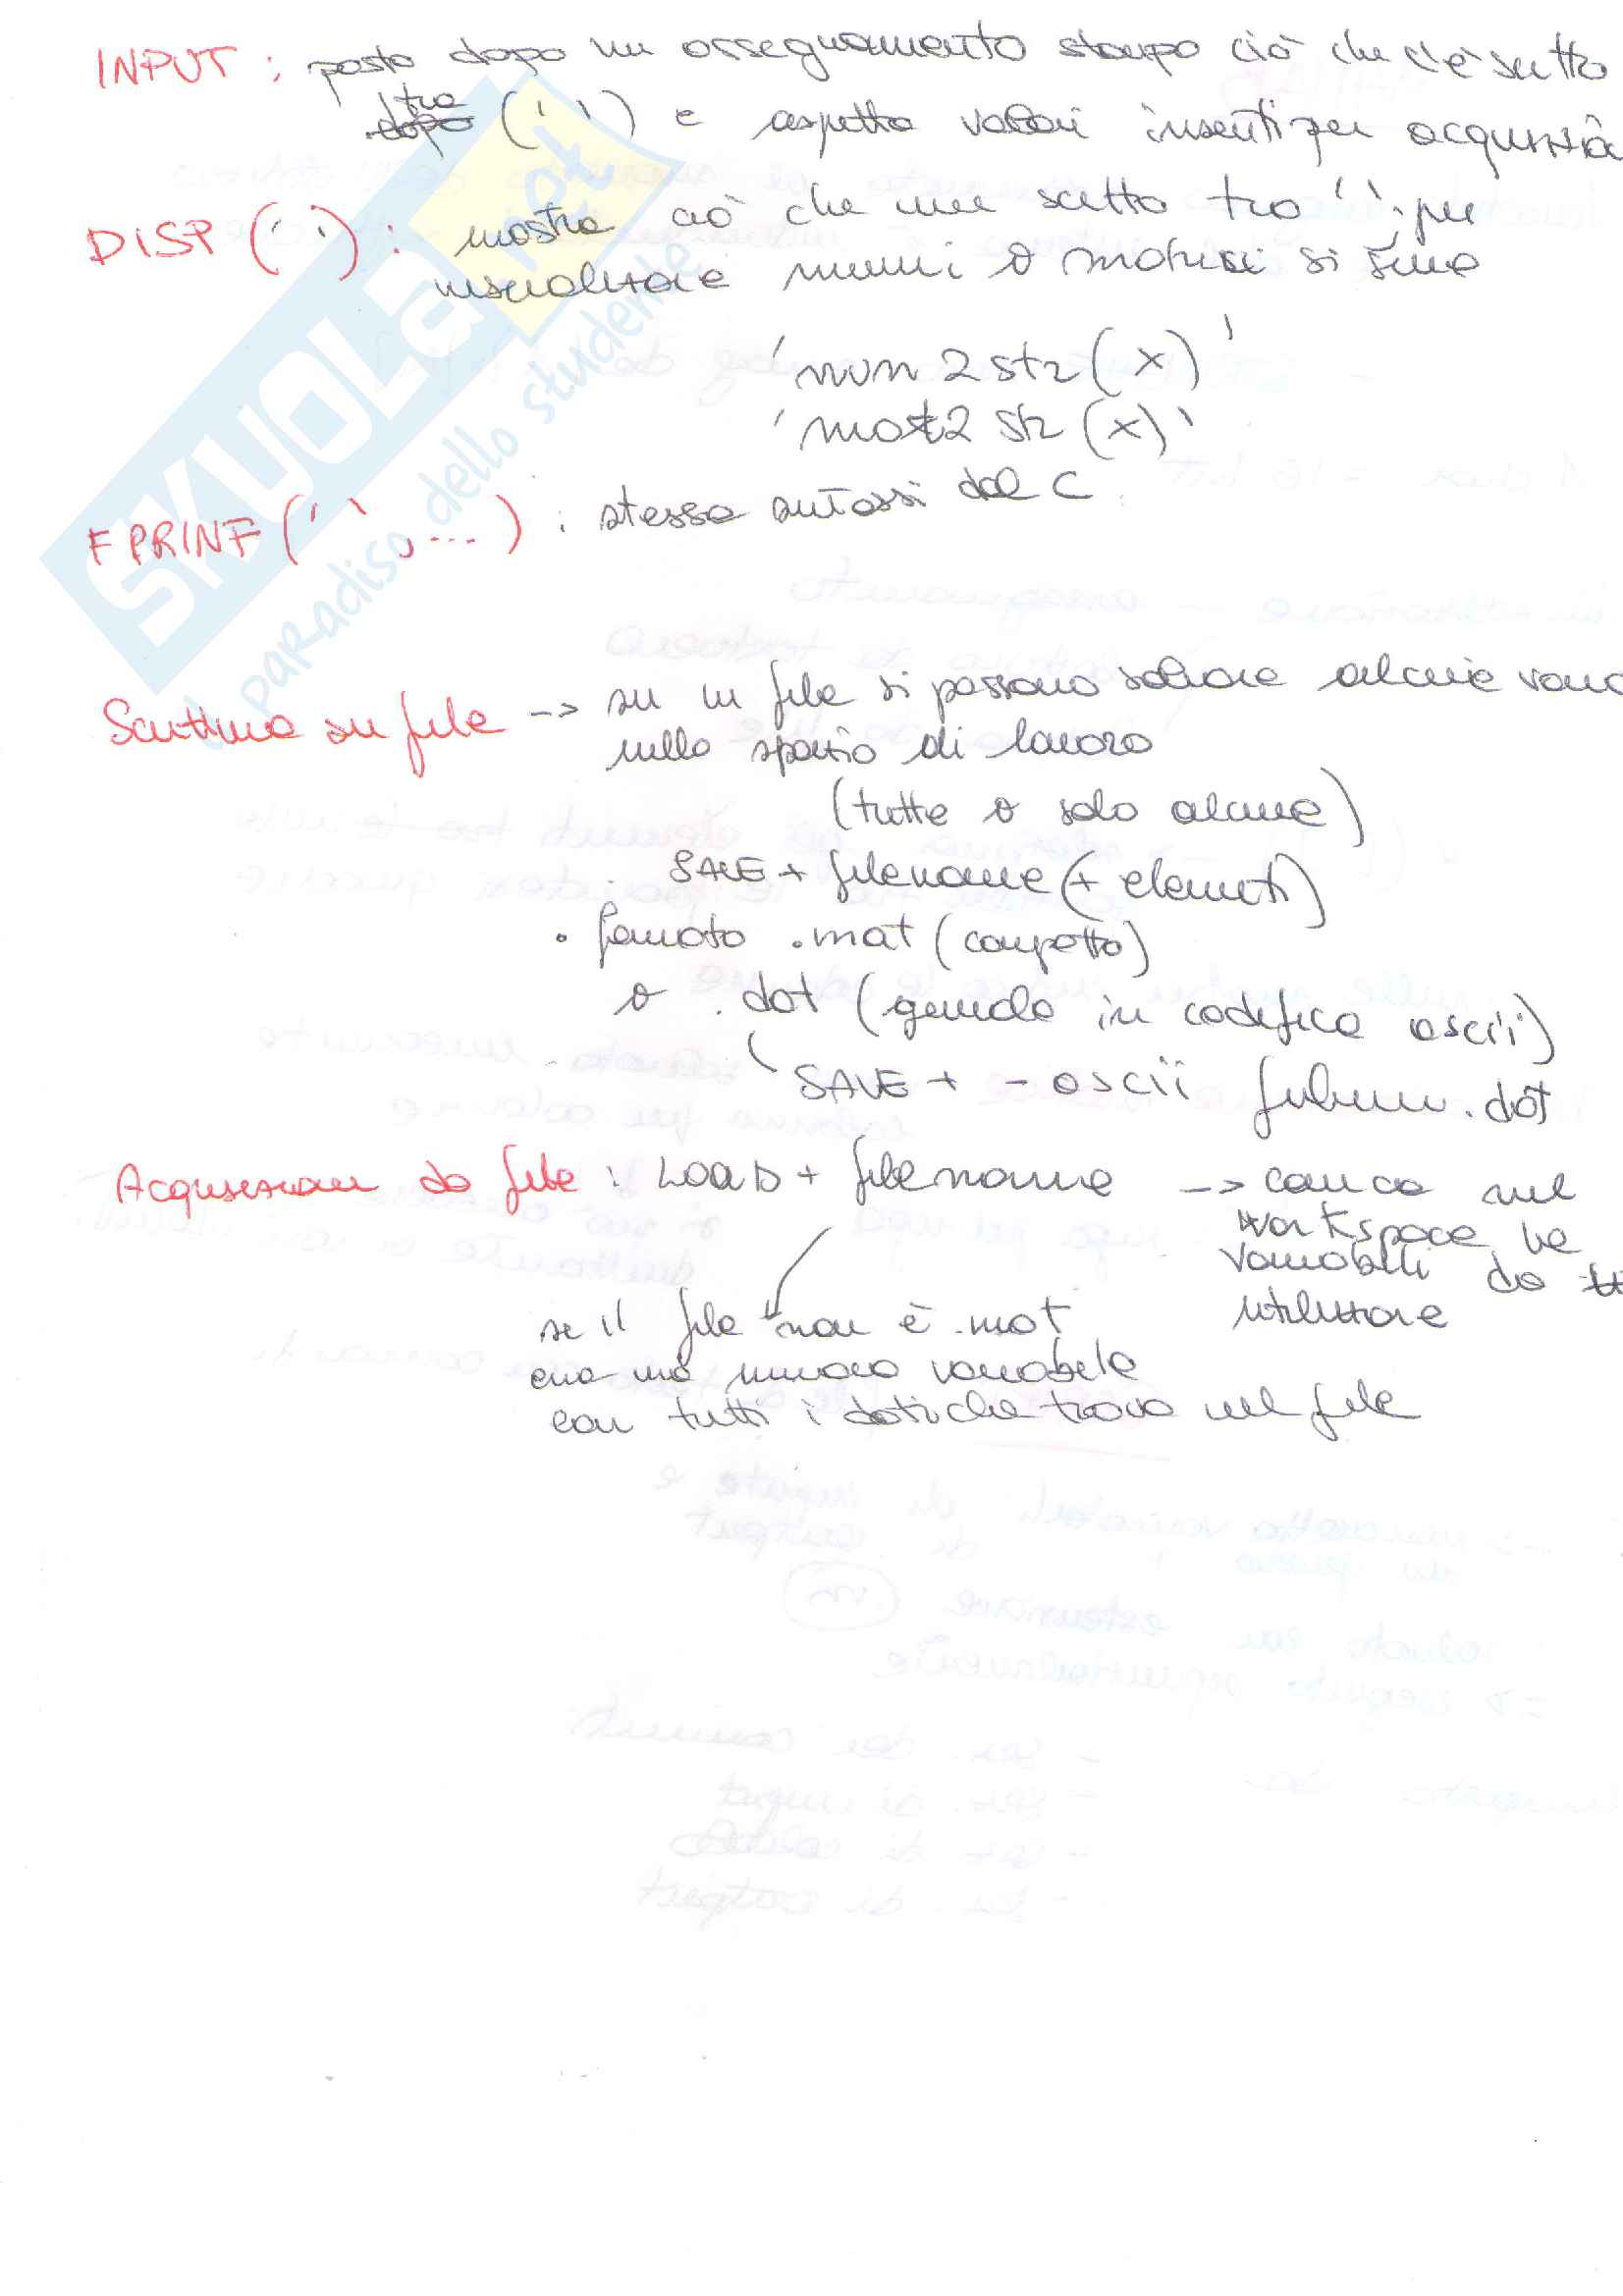 INPUT : posto dopo un assegnamento stampa ciò che c'è scritto
dopo tra (' ') e aspetta valori inseriti per acquisirli
DISP (' ') : mostra ciò che viene scritto tra ' ', per
visualizzare numeri o matrici si
'num2str(x)'
'mat2str(x)'
FPRINF(' ', ...) : stessa sintassi del C
Scrittura su file -> su un file si possono salvare alcune
nello spazio di lavoro
(tutte o solo alcune)
SAVE + filename (+ elementi)
. formato .mat (compatto)
o .dat (generale in codifica ascii)
SAVE + - ascii .dat
Acquisizione da file : LOAD + filename -> carica nel
workspace le
variabili da
utilizzare
se il file non è .mat
crea una nuova variabile
con tutti i dati che trova nel file
SKUOLA.net
il paradiso dello studente